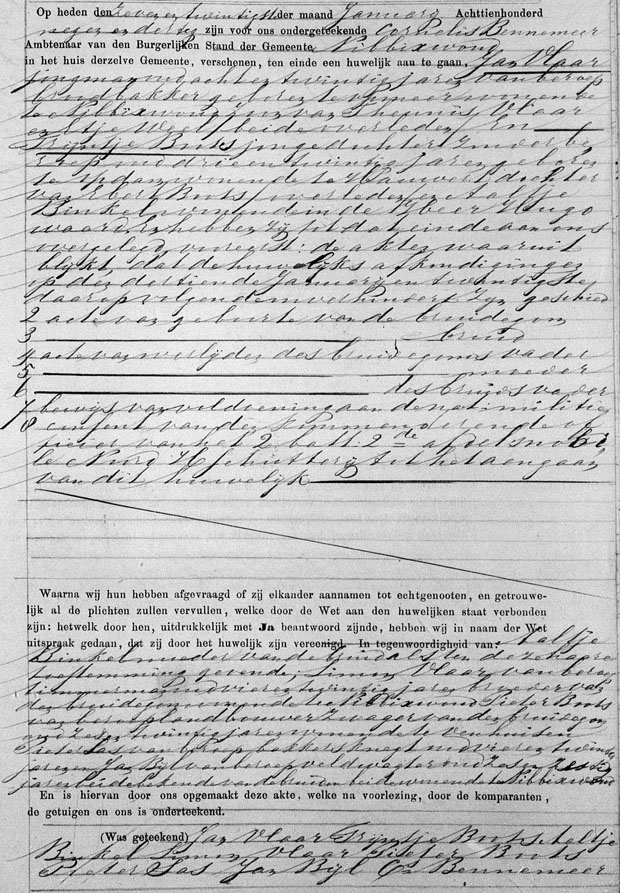 Op heden den Zevenentwintigst der maand Januarij Achttienhonderd
negenendertig zijn voor ons ondergeteekende Cornelis Bennemeer
Ambtenaar van den Burgerlijken Stand der Gemeente Nibbixwoud
in het huis derzelve Gemeente, verschenen, ten einde een huwelijk aan te gaan, Jan Vlaar
jongman oud achtentwintig jaren van beroep
broodbakker geboren te wonende
te Nibbixwoud zoon van Theunis Vlaar
en beide overleden En
Trijntje Boots jongedochter zonder be
roep oud drieentwintig jaren geboren
te Spanbroek wonende te Hauwert dochter
van Boots overleden en Aaltje
Binkel wonende in de Heer Hugo
waard En hebben zij tot dat einde aan ons
overgelegd vooreerst: de akten waaruit
blijkt dat de huwelijks afkondigingen
op den dertiende Januarij en twintigste
daaropvolgende onverhinderd zijn geschied
2 acte van geboorte van de bruidegom
3 bruid
4 acte van overlijden des bruidegoms vader
5 moeder
6 des bruids vader
7 bewijs van voldoening aan de nat: militie
8 consent van den kommanderende of
ficier van het 2 batt: 2de afdel: mobi
le Noord H schutterij tot het aengaan
van dit huwelijk
Waarna wij hun hebben afgevraagd of zij elkander aannamen tot echtgenooten, en getrouwe-
lijk al de plichten zullen vervullen, welke door de Wet aan den huwelijken staat verbonden
zijn: hetwelk door hen, uitdrukkelijk met Ja beantwoord zijnde, hebben wij in naam der Wet
uitspraak gedaan, dat zij door het huwelijk zijn vereenigd. In tegenwoordigheid van: Aaltje
Binkel moeder van de bruid als ten deze hare
toestemming gevende, Simon Vlaar van beroep
timmerman oud vierentwintig jaren broeder van
den bruidegom wonende te Nibbixwoud Pieter Boots
van beroep landbouwer zwager van den bruidegom
oud zesentwintig jaren wonende te Venhuisen
Pieter Sas van beroep bakkersknegt oud vierentwintig
jaren en Jan Bijl van beroep veldwagter oud zesen
jaren beide bekende van bruid en beide wonende te Nibbixwoud
En is hiervan door ons opgemaakt deze akte, welke na voorlezing, door de komparanten,
de getuigen en ons is onderteekend.
(Was geteekend) Jan Vlaar Trijntje Boots Aeltje
Binkel Simon Vlaar Pieter Boots
Pieter Sas Jan Bijl Cs Bennemeer